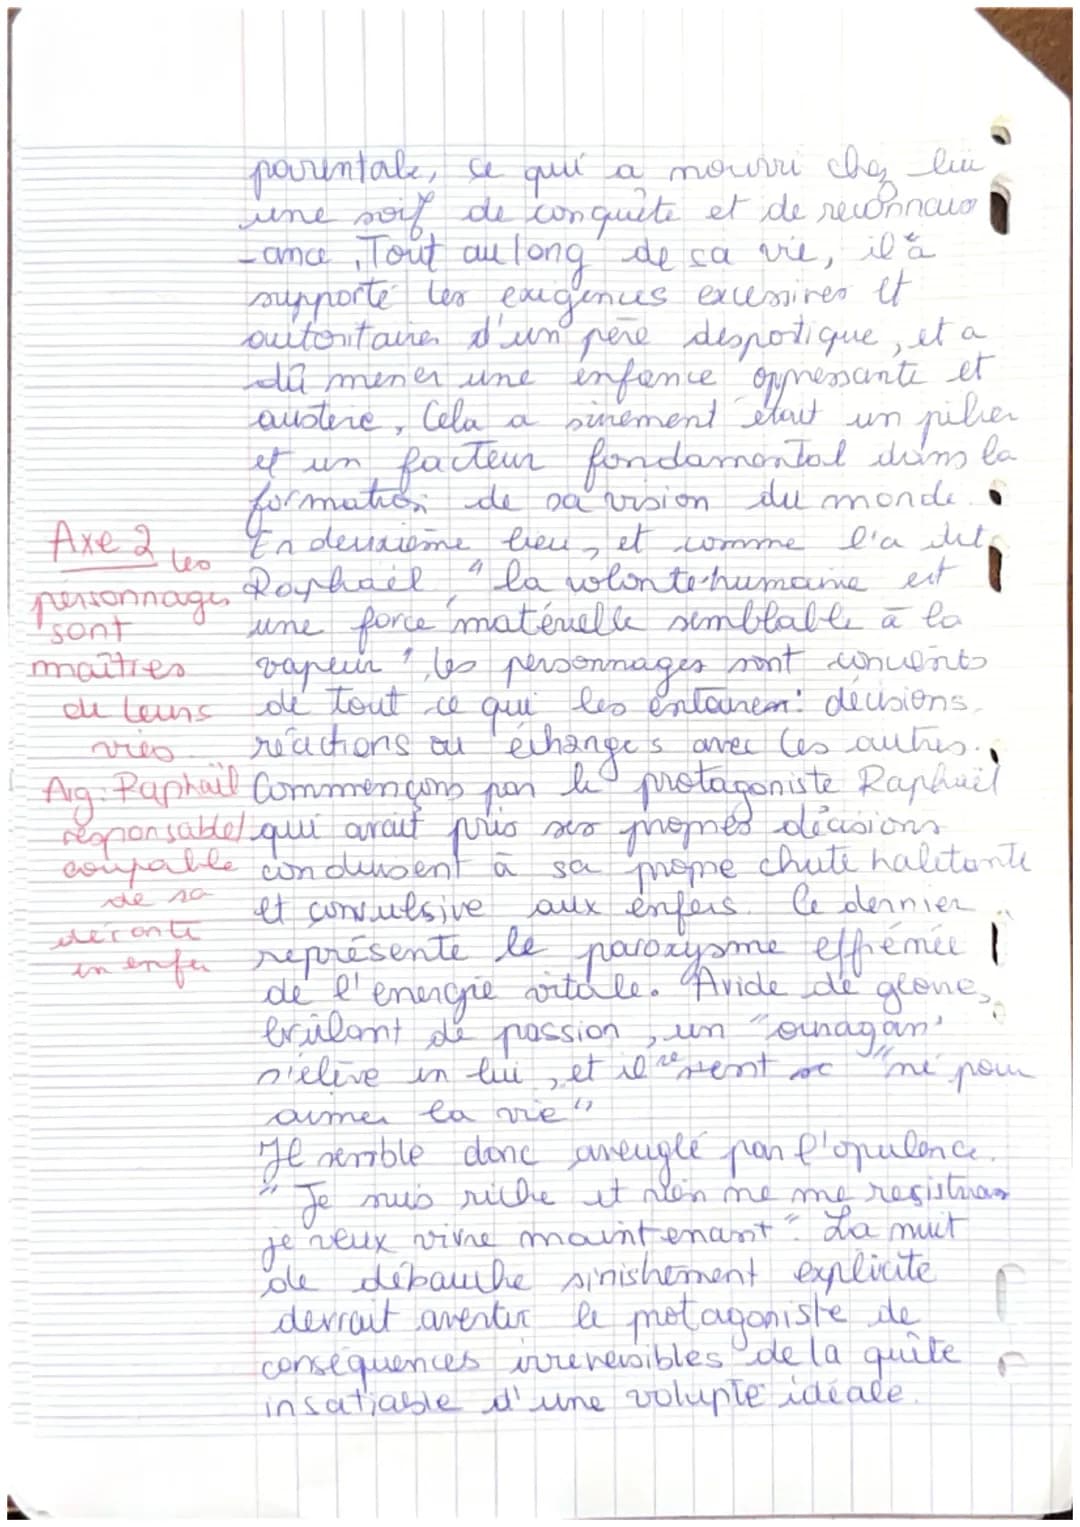 parentale, ce qui a nourri chez lui
une soif de conquête et de reconnaiss
-ance. Tout au long de sa vie, il a
supporté les exigences excessives et
autoritaires d'un père despotique, et a
dû mener une enfance oppressante et
austère, Cela a sûrement était un pilier
et un facteur fondamental dans la
formation de sa vision du monde.
Axe 2
En deuxième lieu, et comme l'a dit
les
Raphaël, "la volonté humaine est
personnages
une force matérielle semblable à la
sont
maîtres
vapeur", les personnages sont conscients
de leurs
de tout ce qui les : décisions,
vies
réactions ou échanges avec les autres.
Arg: Raphaël
Commençons par le protagoniste Raphaël
responsable/
qui avait pris ses propres décisions
coupable
conduisent à sa propre chute haletante
de sa
et convulsive aux enfers. Ce dernier
en enfer
représente le paroxysme effrénée
de l'énergie vitale. Avide de gloire,
brûlant de passion, un "ouragan"
s'élève en lui, et il se sent "né pour
aimer la vie"
Il semble donc aveuglé par l'opulence.
"Je suis riche et rien ne me
je veux vivre maintenant". La nuit
de débauche explicite
devrait avertir le protagoniste de
conséquences irréversibles de la quête
insatiable d'une volupté idéale.